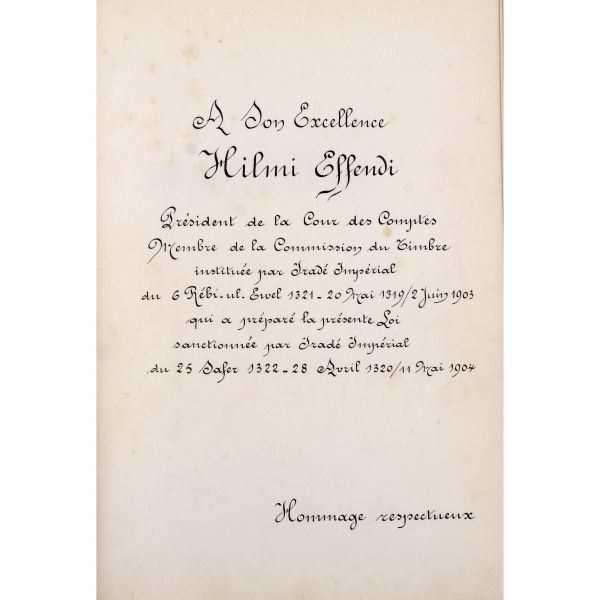 A Son Excellence
Hilmi Effendi
Président de la Cour des Comptes
Membre de la Commission du Timbre
instituée par Iradé Impérial
du 6 Rébi-ul-Ewel 1321-20 Mai 1319/2 Juin 1903
qui a préparé la présente Loi
sanctionnée par Iradé Impérial
du 25 Safer 1322-28 Avril 1320/11 Mai 1904
Hommage respectueux